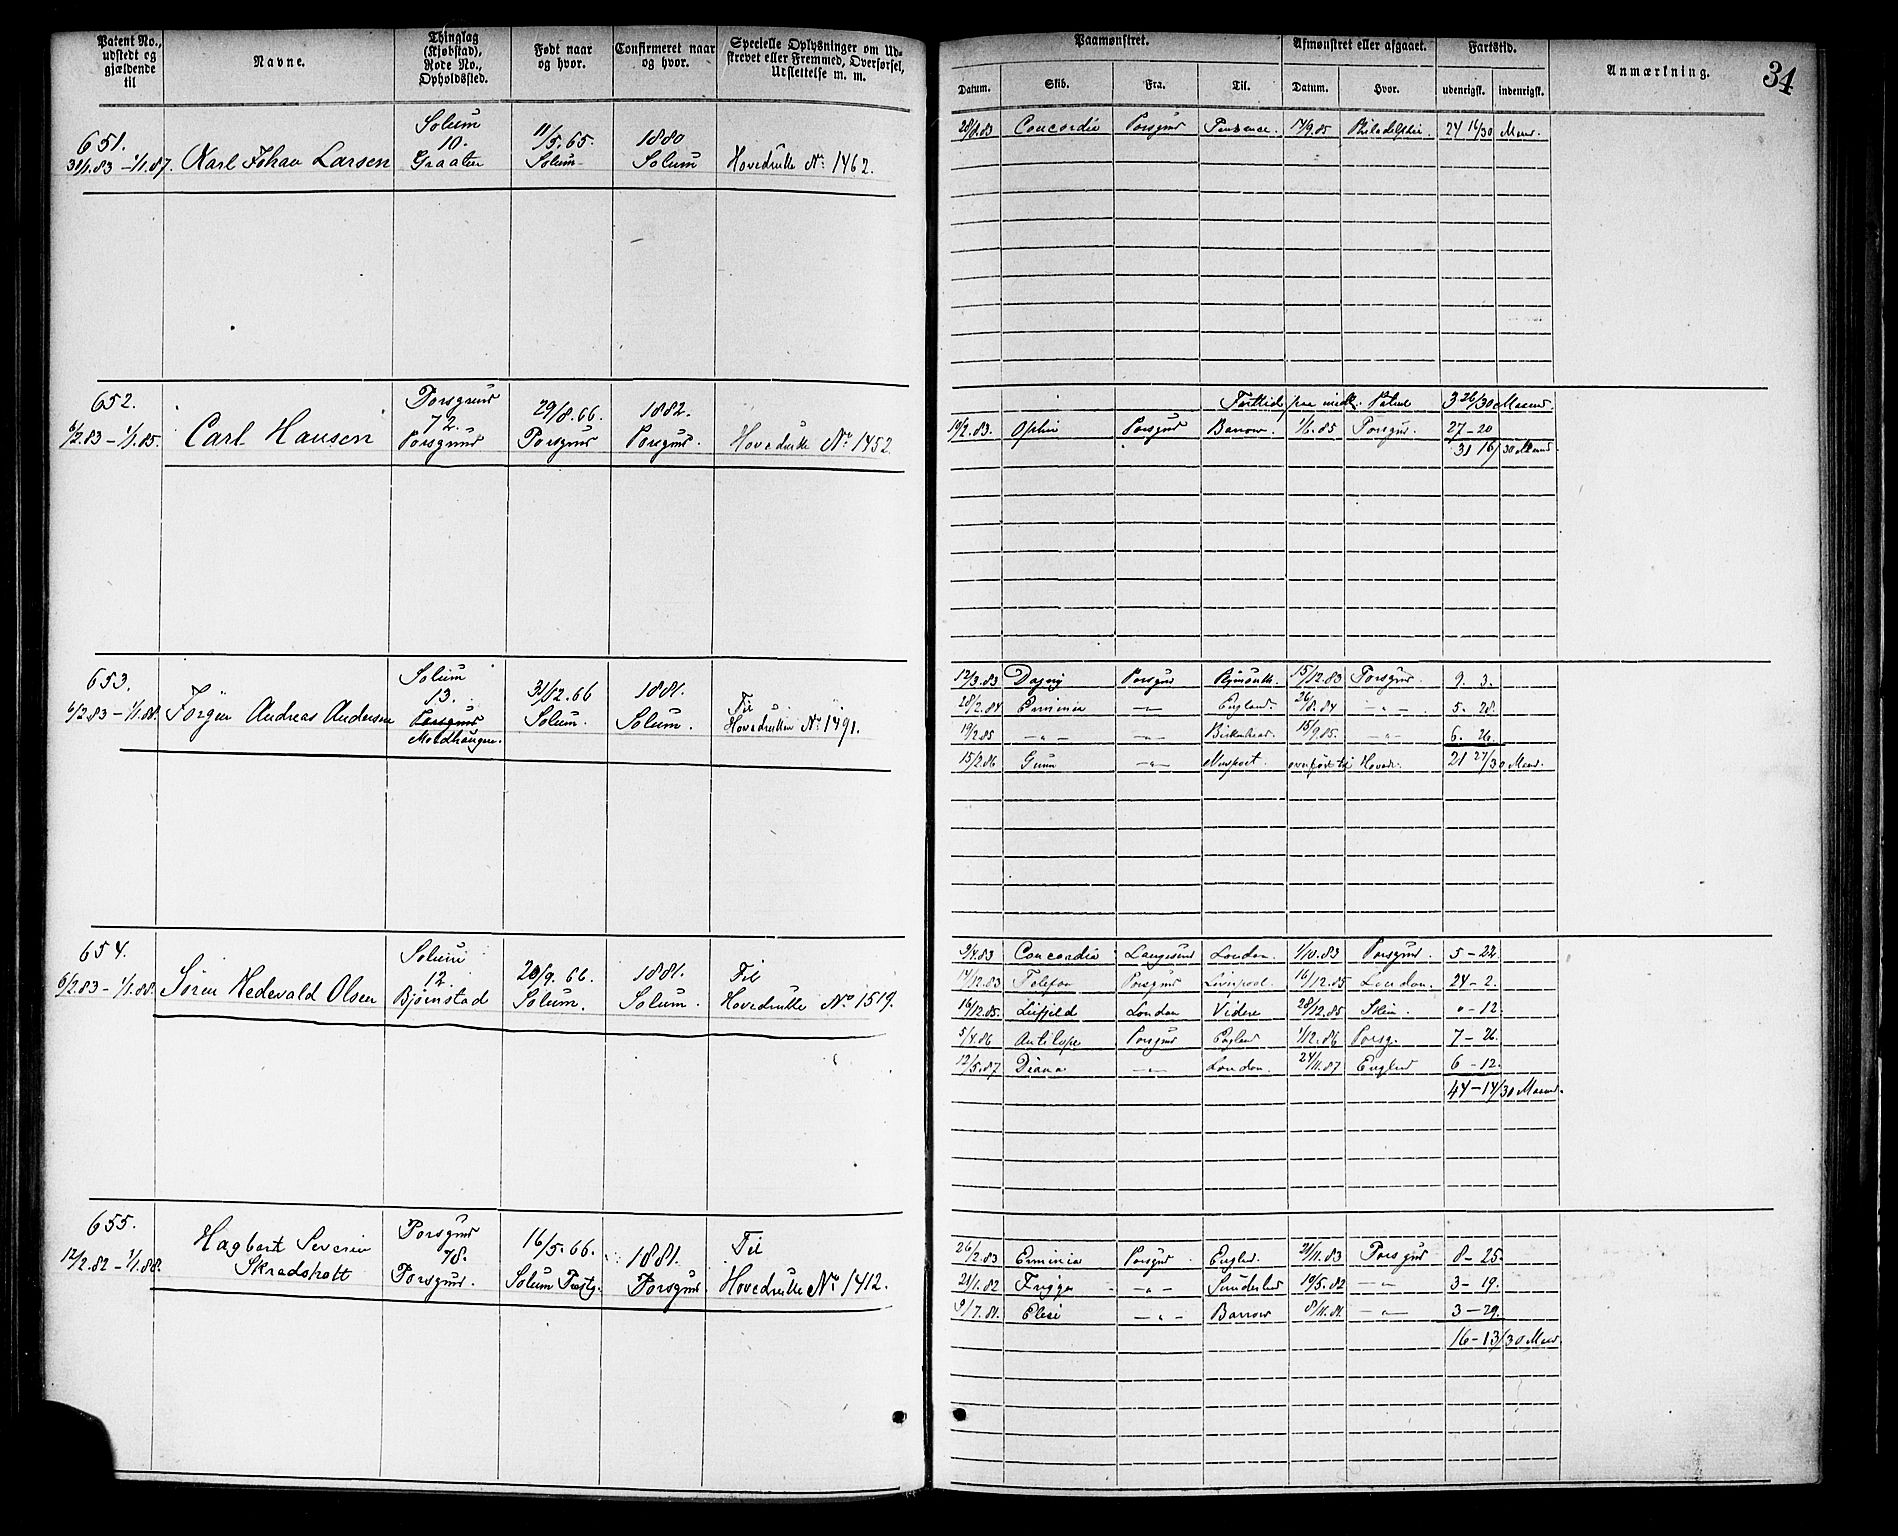 Patent No., udstedt og gjældende til
Navne.
Thinglag (Kjøbstad), Rode No., Opholdssted.
Født naar og hvor.
Confirmeret naar og hvor.
Specielle Oplysninger om Udskrevet eller Fremmed, Overførsel, Udslettelse m. m.
Paamønstret.
Afmønstret eller afgaaet.
Fartstid.
Anmærkning.
34
Datum. Skib. Fra. Til. Datum. Hvor. udenrigsk. indenrigsk.
651.
31/1.83 – 1/1.87.
Karl Johan Larsen
Solum
10.
Graaten
11/5.65.
Solum
1880
Solum
Hovedrulle No 1462.
Concordia Porsgrund 17/9.85 Philadelphia. 24 16/30 Maan.
652.
6/2.83 – 1/1.85.
Carl Hansen
Porsgrund
72.
Porsgrund
29/8.66.
Porsgrund
1882.
Porsgrund.
Hovedrulle No 1452.
Fartstid paa Patent 3 26/30 Maaned.
10/2.83. Porsgrund Barrow. 1/6.85 Porsgrund. 27 – 20
31 16/30 Maaned.
653.
6/2.83 – 1/1.88.
Jörgen Andreas Andersen
Solum
13.
Porsgrund
Moldhaugen.
31/12.66
Solum.
1881.
Solum.
Til
Hovedrullen No 1491.
12/3.83 Dagny Porsgrund 15/12.83 Porsgrund. 9. 3.
28/2.84 Erminia — England. 26/8.84 — „ — 5. 28.
19/2.85 — „ — — „ — Birkenhead. 15/9.85. — „ — 6. 26.
15/2.86 — „ — Newport. overført til Hovedr. 21 27/30 Maaned.
654.
6/2.83 – 1/1.88.
Sören Hedevald Olsen
Solum
12.
Bjørnstad
20/9.66.
Solum.
1881.
Solum.
Til
Hovedrulle No 1519.
9/4.83 Concordia Langesund London. 1/10.83 Porsgrund. 5 – 22
17/12.83 Telefon Porsgrund Liverpool. 16/12.85 London. 24 – 2.
16/12.85. Leifjeld London Videre 28/12.85 Skien. „ – 12.
5/4.86 Antilope Porsgrund England 1/12.86 Porsg. 7 – 26.
12/5.87 Diana — „ — London. 24/11.87 England 6 – 12.
44 – 14/30 Maaned.
655.
12/2.82 – 1/1.88.
Hagbart Severin
Skradshott
Porsgrund
78.
Porsgrund.
16/5.66.
Solum
1881.
Porsgrund.
Til
Hovedrulle No 1412.
26/2.83 Erminia Porsgrund England. 21/11.83 Porsgrund 8 – 25.
21/1.82 Frigga — „ — Sunderland 19/5.82 — „ — 3 – 19.
9/7.81. — „ — Barrow 8/11.81. — „ — 3 – 29.
16 – 13/30 Maaned.